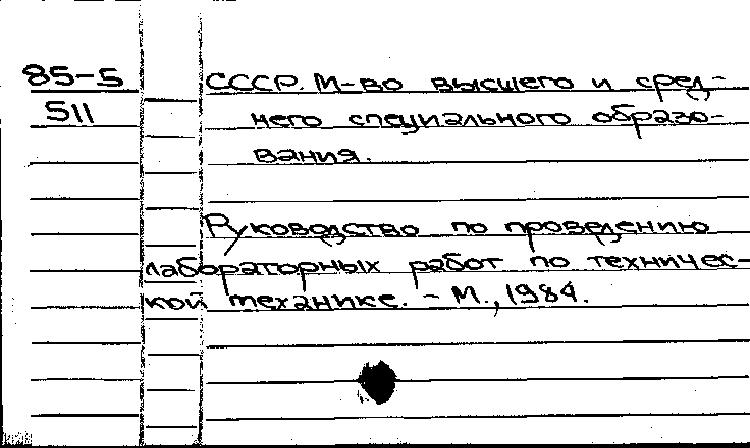 85-5 СССР. М-во высшего и сред-
511 него специального образо-
вания.
Руководство по проведению
лабораторных работ по техничес-
кой механике. - М., 1984.